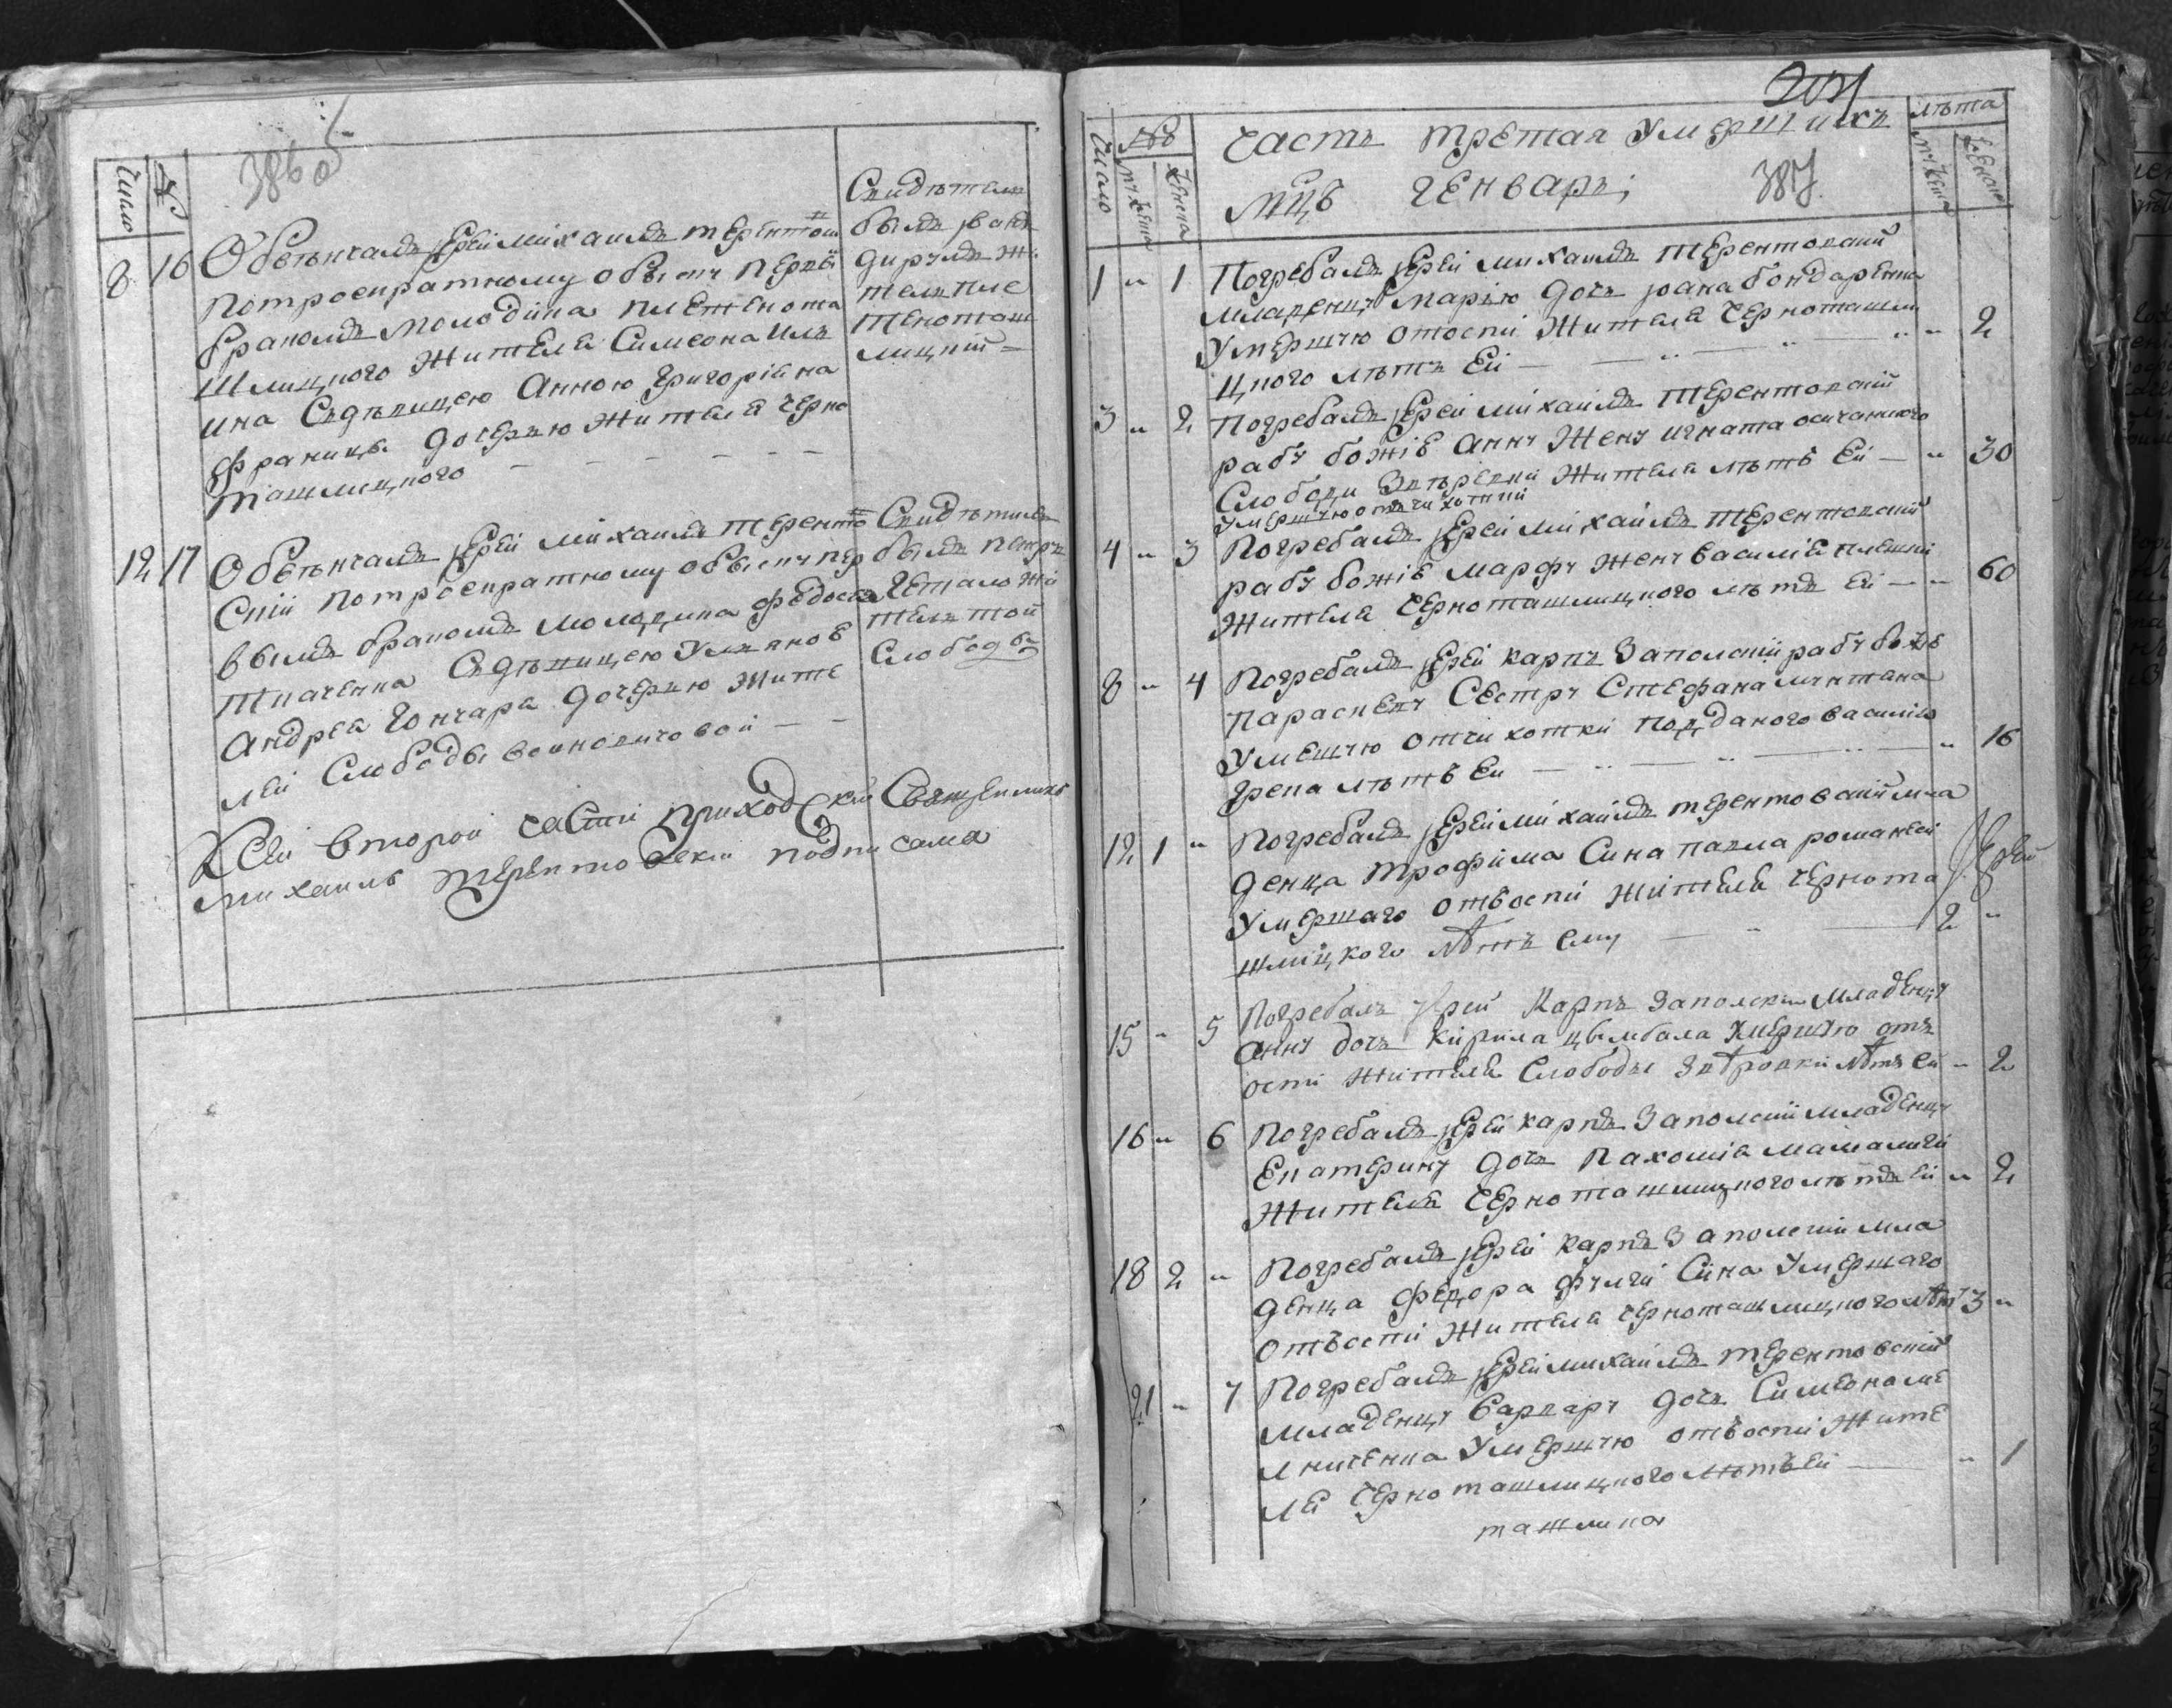 386 об
Число №
8 16 Обвѣнчалъ Іерей Михаилъ Терентов
потроекратному обыску первы
бракомъ молодика Плетенота
шлицкого жителя Симеона
ина Здѣвицею Анною Григорійна
Франица дочерью жителя Черно
ташлицкого
Свидѣтелъ
былъ
жи
телъ Пле
теноташ
лицкій
12 17 Обвѣнчалъ Іерей Михаилъ Терентов
скій потроекратному обыску пер
вымъ бракомъ молодика Федос
Ткаченка Здѣвицею Улянов
Андрея Гончара дочерью жите
лей Слободы Воиновичовой
Свидѣтилъ
былъ Петръ
Четало жи
телъ той
Слободы
Ксей второй части приходскій Священникъ
михаилъ терентовски подписалъ
201
Число № мужеска женска
Часть третая умершихъ
мцъ генварь
387
лѣта
мужеска женска
1 " 1 Погребалъ Іерей Михаилъ Терентовскій
младенцу Марию дочь Іоана Бондаренка
умершую отоспи жителя Черноташли
цкого лѣтъ ей " 2
3 " 2 Погребалъ Іерей Михаилъ Терентовскій
рабу божіе Анну жену Игната осичанского
Слободи Звѣревки жителя лѣтъ ей " 30
умершую отчихотки
4 " 3 Погребалъ Іерей Михаилъ Терентовскій
рабу божіе Марфу жену Василія Плешки
жителя Черноташлицкого лѣтъ ей " 60
8 " 4 Погребалъ Іерей Карпъ Заполскій рабу божіе
Параскеву Сестру Стефана Мунтяна
умешую отчихотки подданого Василія
Грека лѣтъ ей " 16
12 1 " Погребалъ Іерей Михаилъ Терентовскій мла
денца Трофима Сина Павла Романей
умершаго отъоспи жителя Чернота
шлицкого лѣтъ ему 2 "
Іерей
15 " 5 Погребалъ Іерей Карпъ Заполски младенцу
Анну дочь Кирила Цымбала умершую отъ
оспи жителя Слободы Звѣровки лѣтъ ей " 2
16 " 6 Погребалъ Іерей Карпъ Заполскій младенцу
Екатерину дочь Пахомія Мамалиги
жителя Черноташлицкого лѣтъ ей " 2
18 2 " Погребалъ Іерей Карпъ Заполскій мла
денца Федора Фулги Сина умершаго
отъоспи жителя Черноташлицкого лѣтъ 3 "
21 " 7 Погребалъ Іерей Михаилъ Терентовскій
младенцу Варвару дочь Симеона ме
лниченка умершую отъоспи жите
ля Черноташлицкого лѣтъ ей " 1
ташлика